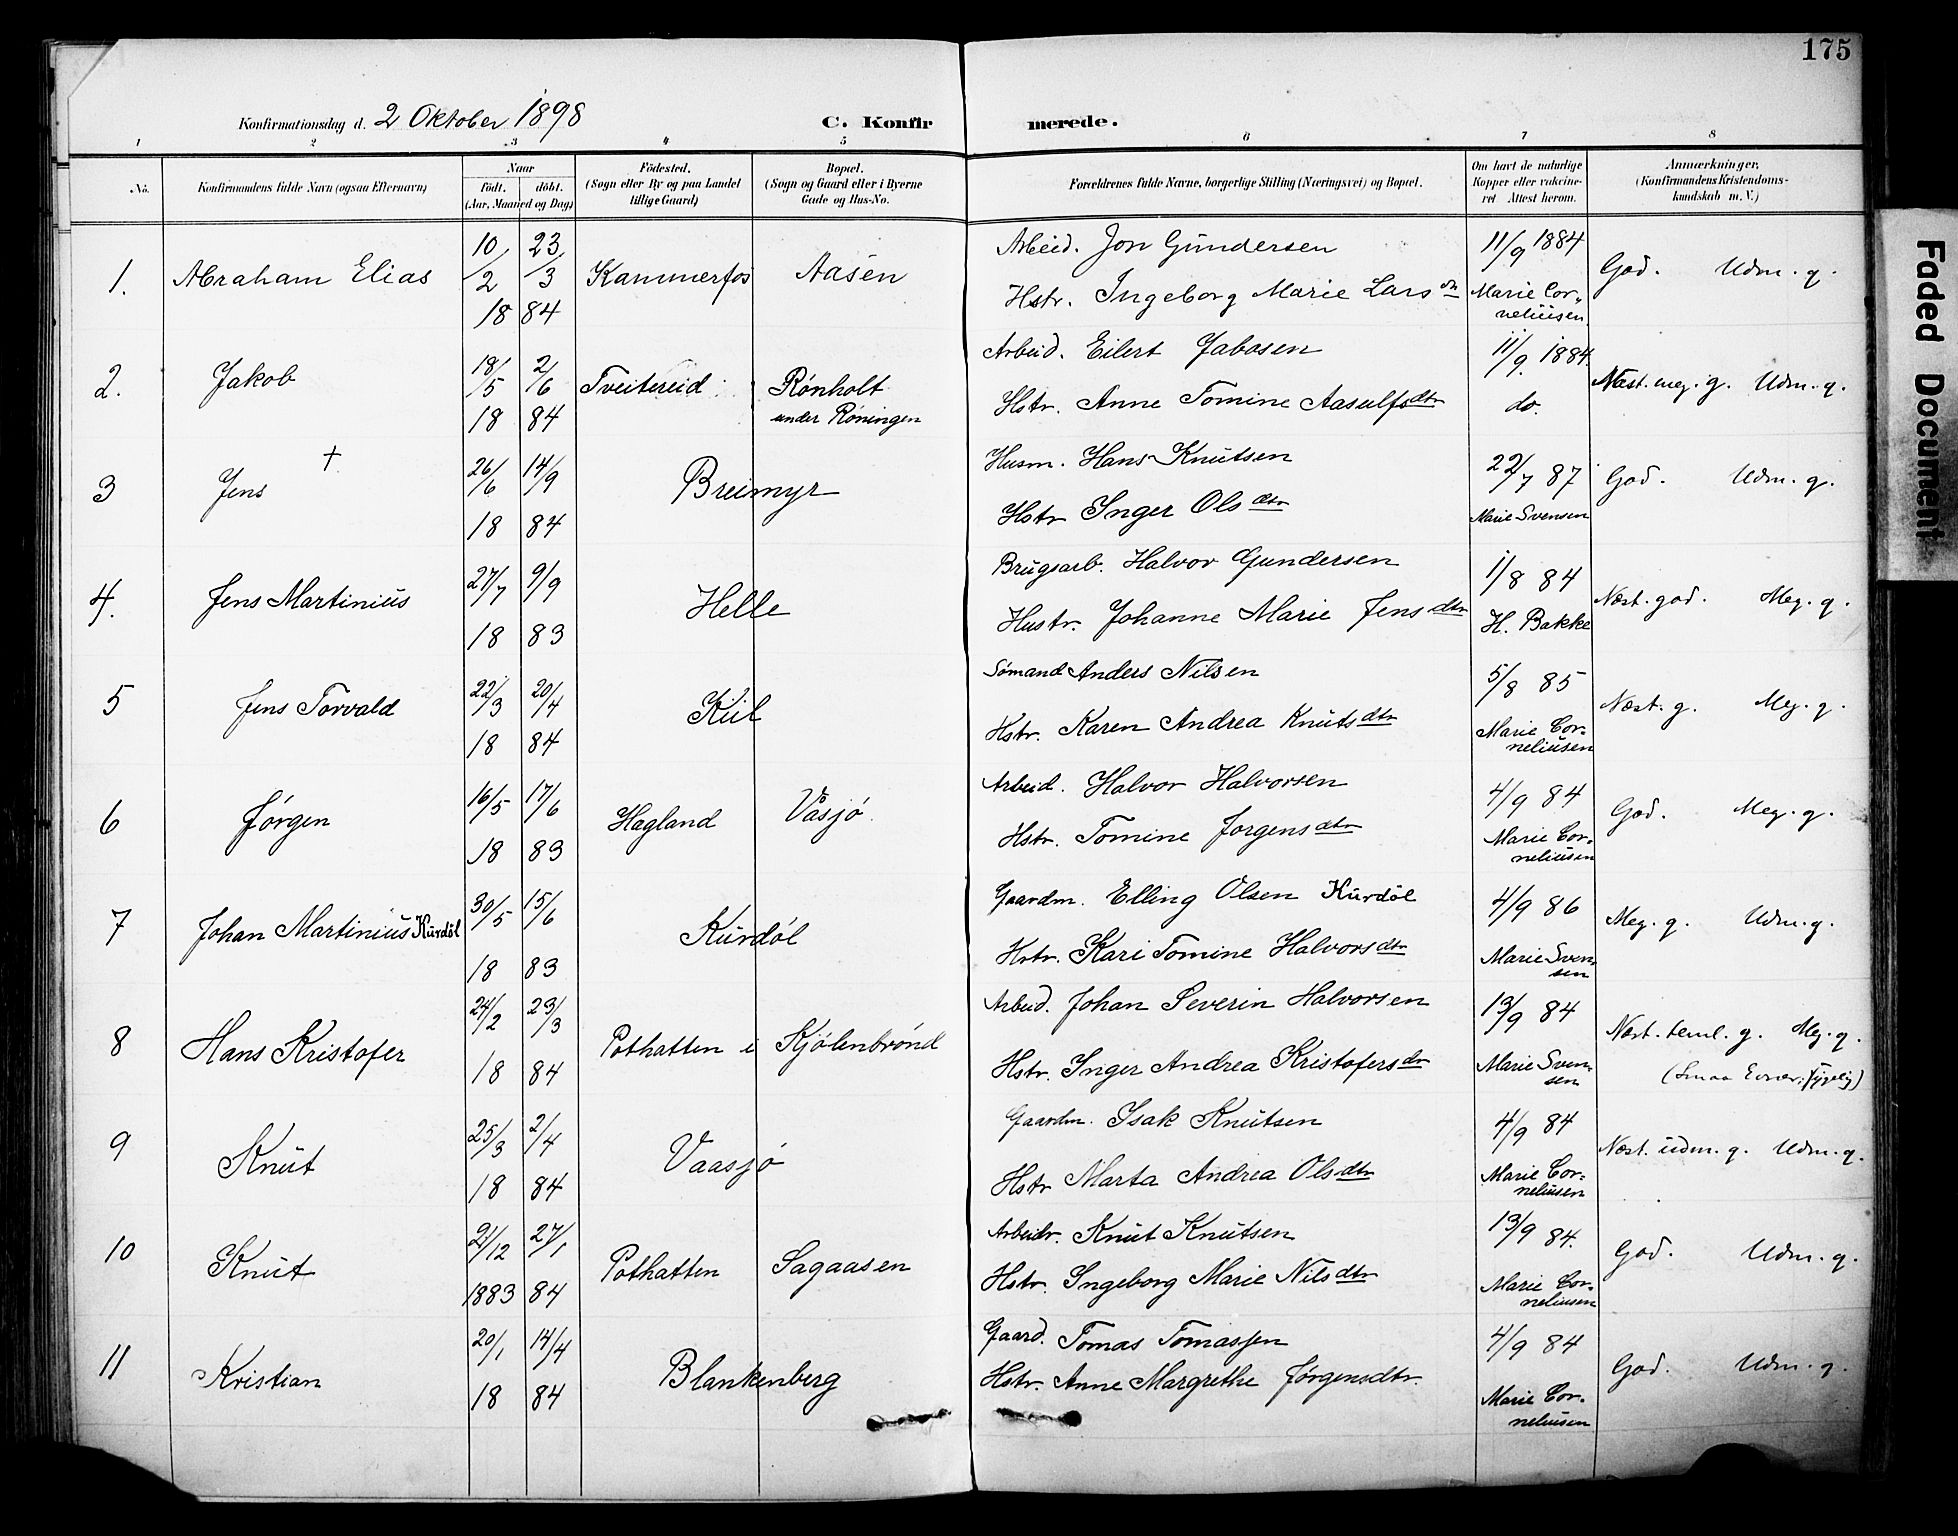 175
Konfirmationsdag d. 2 Oktober 1898 C. Konfirmerede.
1 2 3 4 5 6 7 8
No. Konfirmandens fulde Navn (ogsaa Efternavn) Naar født. døbt. (Aar, Maaned og Dag) Födested. (Sogn eller By og paa Landet tillige Gaard) Bopæl. (Sogn og Gaard eller i Byerne Gade og Hus-No. Forældrenes fulde Navne, borgerlige Stilling (Næringsvei) og Bopæl. Om havt de naturlige Kopper eller vakcineret Attest herom. Anmærkninger, (Konfirmandens Kristendomskundskab m. V.)
1. Abraham Elias 10/2 23/3 18 84 Kammerfos Aasen
Arbeid. Jon Gundersen
Hstr. Ingeborg Marie Larsdtr
11/9 1884 Marie Corneliusen God. Udm. g.
2. Jakob 18/5 2/6 18 84 Tveitereid Rønholt under Røningen
Arbeid. Eilert Jabosen
Hstr. Anne Tomine Aasulfsdtr
11/9. 1884. do. Næst. meg. g. Udm. g.
3 Jens † 26/6 14/9 18 84 Breimyr
Husm. Hans Knutsen
Hstr Inger Olsdtr
22/7 87 Marie Svensen God. Udm. g.
4. Jens Martinius 27/7 9/9 18 83 Helle
Brugsarb. Halvor Gundersen
Hustr. Johanne Marie Jensdtr
1/8 84 H. Bakke Næst. god. Meg. g.
5 Jens Torvald 22/3 20/4 18 84 Kiil
Sømand Anders Nilsen
Hstr. Karen Andrea Knutsdtr
5/8 85 Marie Corneliusen Næst. g. Meg. g.
6 Jørgen 16/5 17/6 18 83 Hagland Vasjø
Arbeid. Halvor Halvorsen
Hstr. Tomine Jorgensdtr
4/9 84 Marie Corneliusen God. Meg. g.
7 Johan Martinius Kurdöl 30/5 15/6 18 83 Kurdøl
Gaardm. Elling Olsen Kurdöl
Hstr. Kari Tomine Halvorsdtr
4/9 86 Marie Svensen Meg. g. Udm. g.
8 Hans Kristofer 24/2 23/3 18 84 Pothatten i Kjølenbrønd
Arbeid. Johan Severin Halvorsen
Hstr. Inger Andrea Kristofersdtr
13/9 84 Marie Svensen Næst. teml. g. Meg. g.
(Smaa Evner,
9 Knut 25/3 2/4 18 84 Vaasjø
Gaardm. Isak Knutsen
Hstr Marta Andrea Olsdtr
4/9 84 Marie Corneliusen Næst. udm. g. Udm. g.
10 Knut 21/12 27/1 1883 84 Pothatten Sagaasen
Arbeidr. Knut Knutsen
Hstr. Ingeborg Marie Nilsdtr
13/9 84. Marie Corneliusen God. Udm. g.
11 Kristian 20/1 14/4 18 84 Blankenberg
Gaard. Tomas Tomassen
Hstr. Anne Margrethe Jørgensdtr.
4/9 84 Marie Corneliusen God. Udm. g.
Faded Document